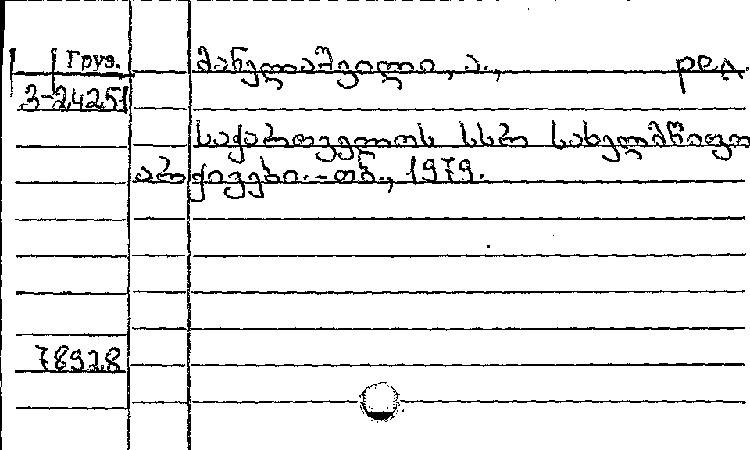 Груз. მანელაშვილი, ა., ред.
3-24251
საქართველოს სსრ სახელმწიფო
არქივები. - თბ., 1979.
78928